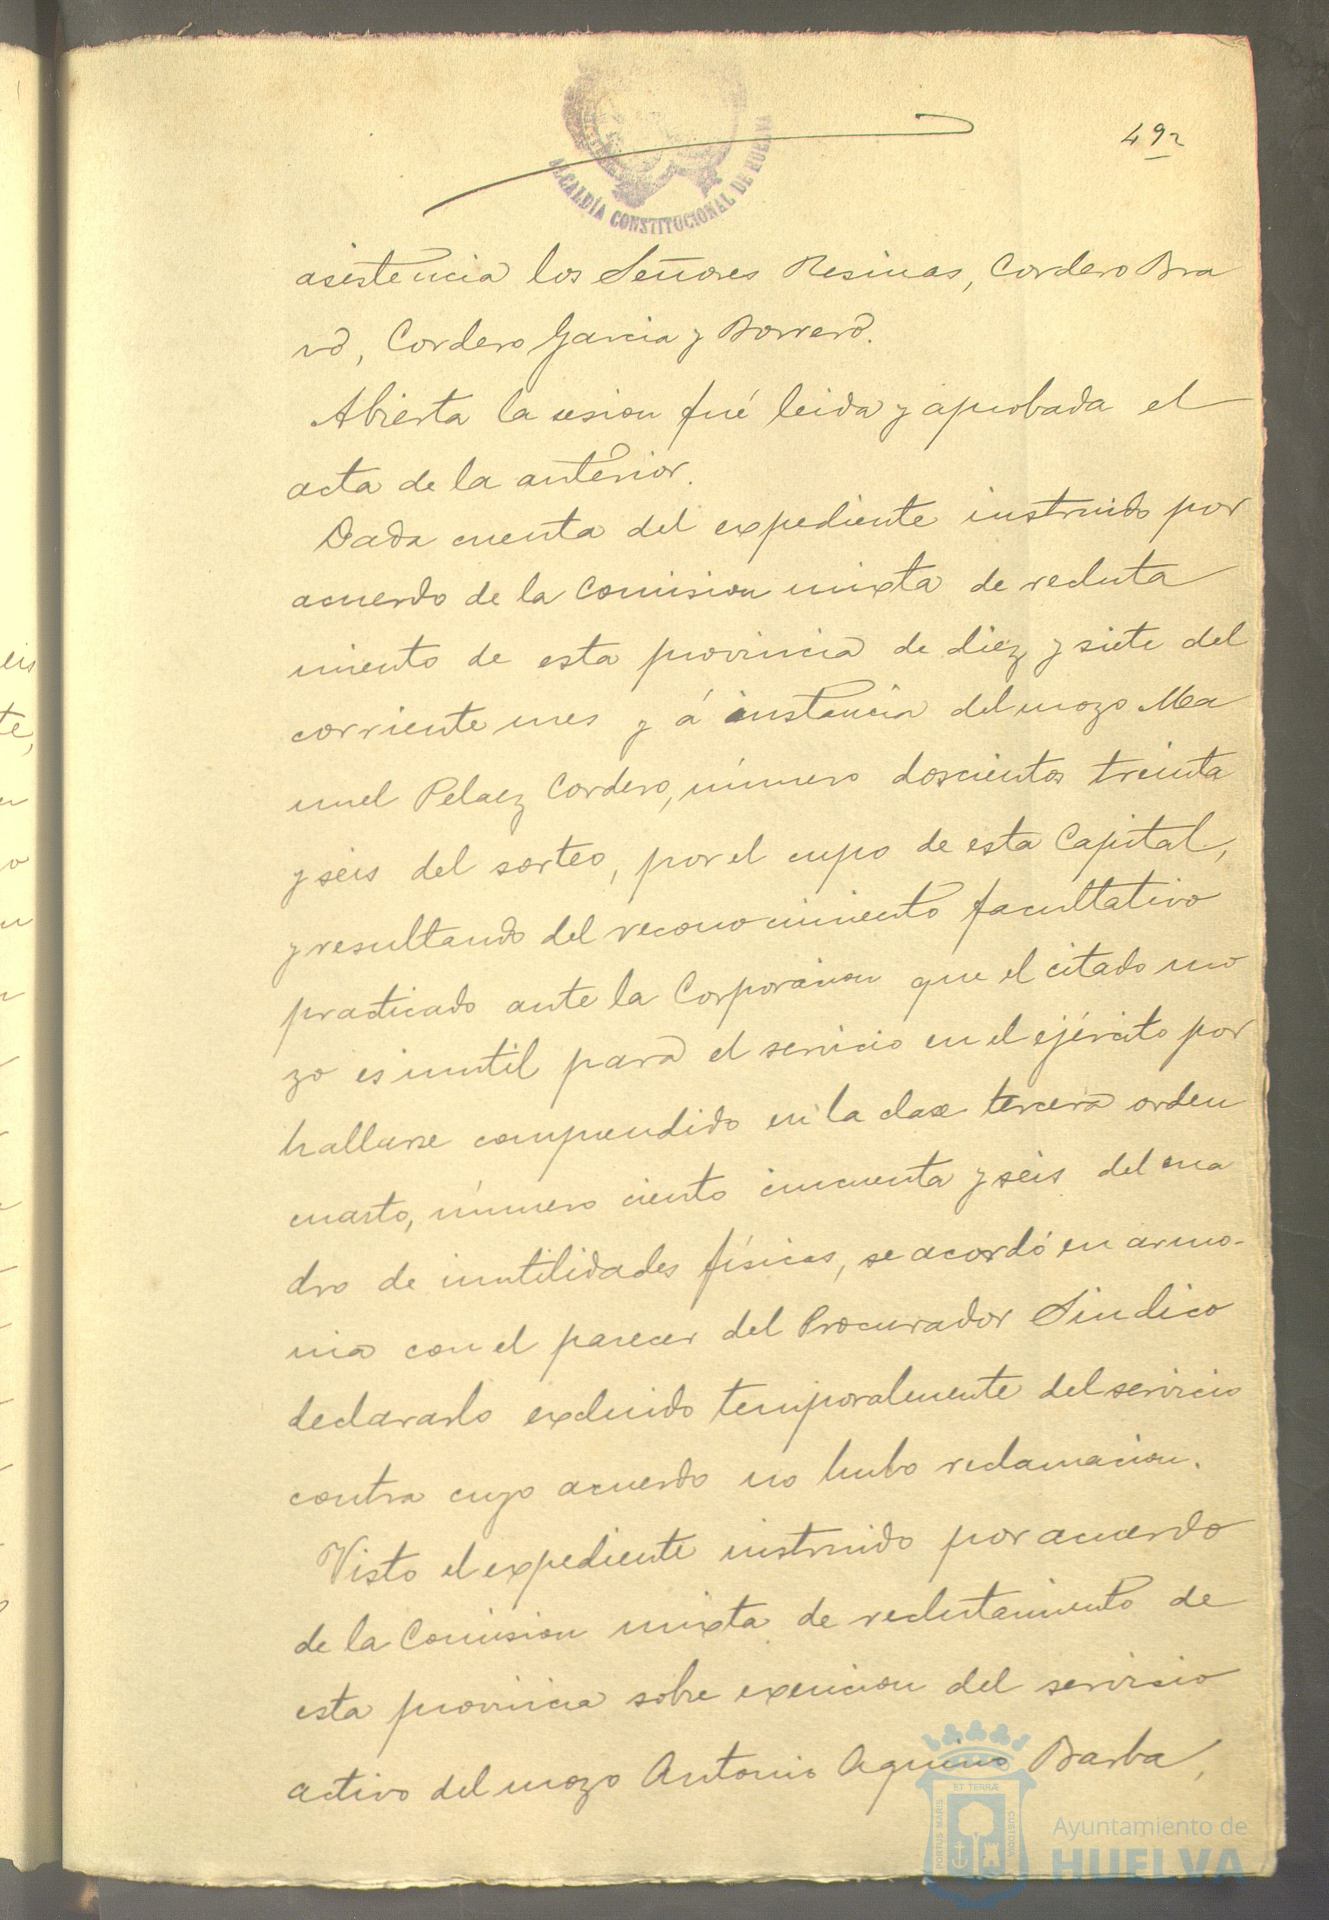 492
ALCALDÍA CONSTITUCIONAL DE HUELVA
asistencia los Señores Resinas, Cordero Bra
vo, Cordero Garcia y Borrero.
Abierta la sesion fué leida y aprobada el
acta de la anterior.
Dada cuenta del expediente instruido por
acuerdo de la Comision mixta de recluta
miento de esta provincia de diez y siete del
corriente mes y á instancia del mozo Ma
nuel Pelaez Cordero, número doscientos treinta
y seis del sorteo, por el cupo de esta Capital,
y resultando del reconocimiento facultativo
practicado ante la Corporacion que el citado mo
zo es inutil para el servicio en el ejército por
hallarse comprendido en la clase tercera orden
cuarto, número ciento cincuenta y seis del cua
dro de inutilidades físicas, se acordó en armo-
nia con el parecer del Procurador Sindico
declararlo excluido temporalmente del servicio
contra cuyo acuerdo no hubo reclamacion.
Visto el expediente instruido por acuerdo
de la Comision mixta de reclutamiento de
esta provincia sobre exencion del servicio
activo del mozo Antonio Aquino Barba,
PORTUS MARIS ET TERRÆ CUSTODIA
Ayuntamiento de
HUELVA